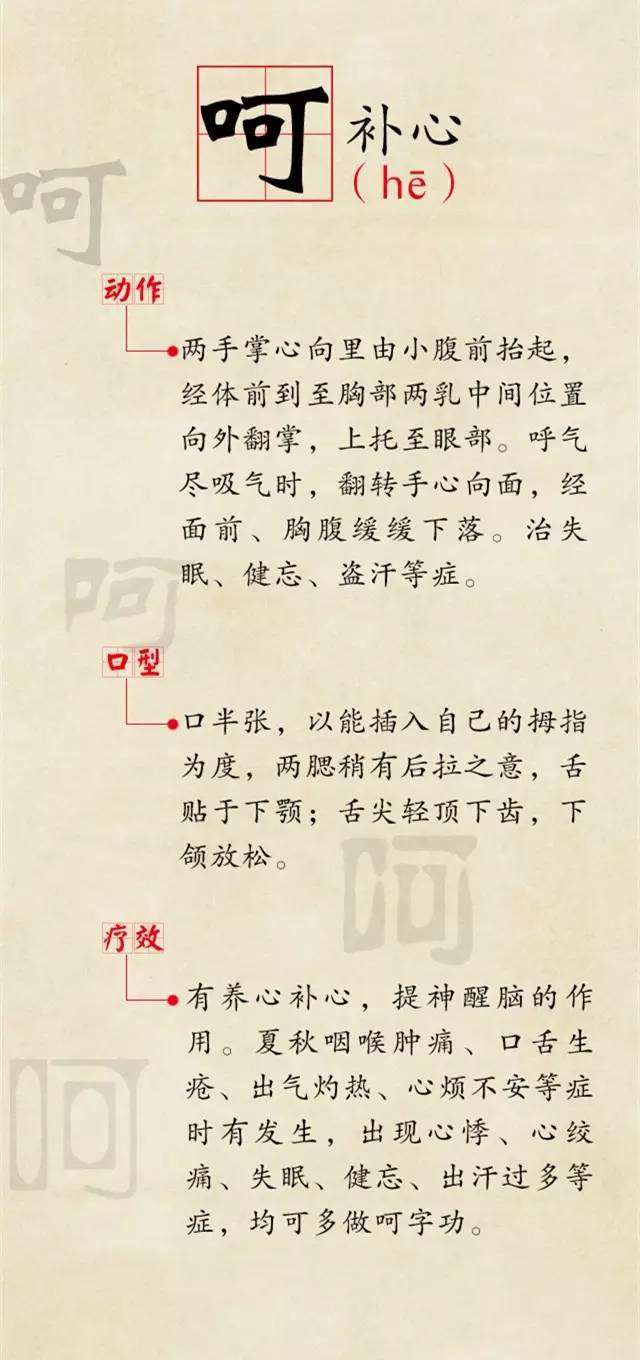 呵 补心
（hē）
呵
动作
两手掌心向里由小腹前抬起，
经体前到至胸部两乳中间位置
向外翻掌，上托至眼部。呼气
尽吸气时，翻转手心向面，经
面前、胸腹缓缓下落。治失
眠、健忘、盗汗等症。
呵
口型
口半张，以能插入自己的拇指
为度，两腮稍有后拉之意，舌
贴于下颚；舌尖轻顶下齿，下
颌放松。
呵
疗效
有养心补心，提神醒脑的作
用。夏秋咽喉肿痛、口舌生
疮、出气灼热、心烦不安等症
时有发生，出现心悸、心绞
痛、失眠、健忘、出汗过多等
症，均可多做呵字功。
呵